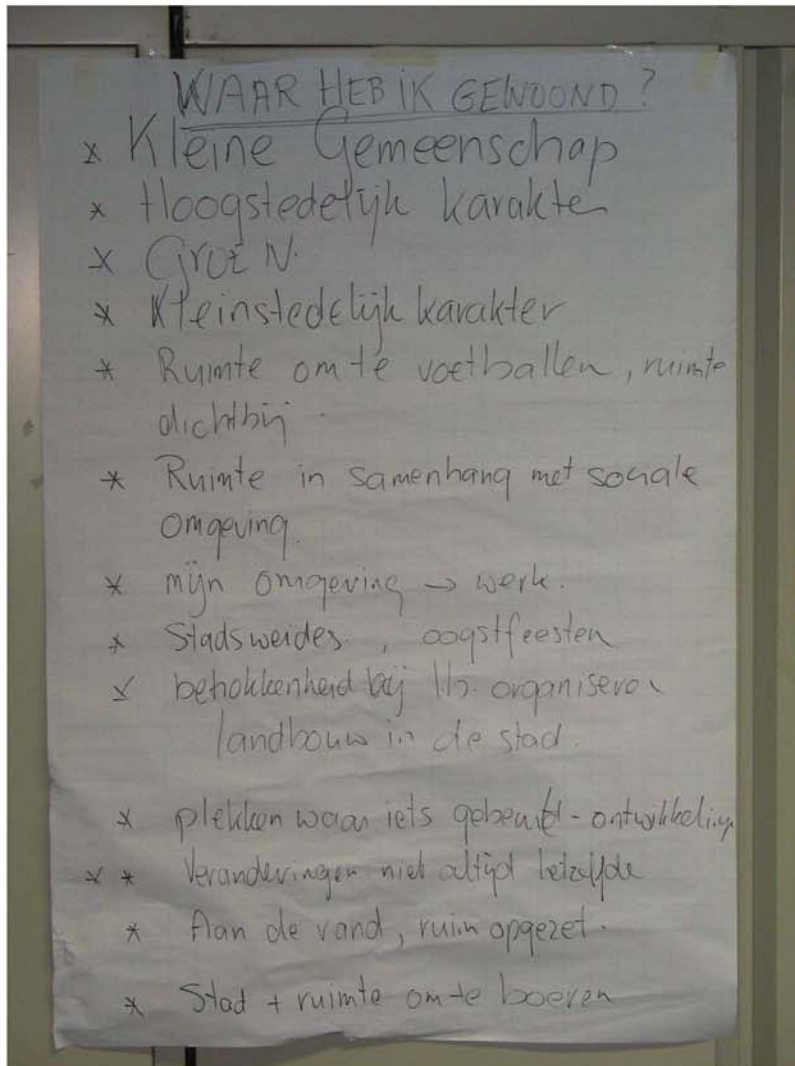 WAAR HEB IK GEWOOND?
* Kleine Gemeenschap
* Hoogstedelijk karakter
* Groen.
* Kleinstedelijk karakter
* Ruimte om te voetballen, ruimte
dichtbij.
* Ruimte in samenhang met sociale
omgeving.
* mijn omgeving → werk.
* Stadsweides, oogstfeesten
* betrokkenheid bij organiseren
landbouw in de stad.
* plekken waar iets gebeurd - ontwikkeling
* * Veranderingen niet altijd hetzelfde
* Aan de rand, ruim opgezet.
* Stad + ruimte om te boeren